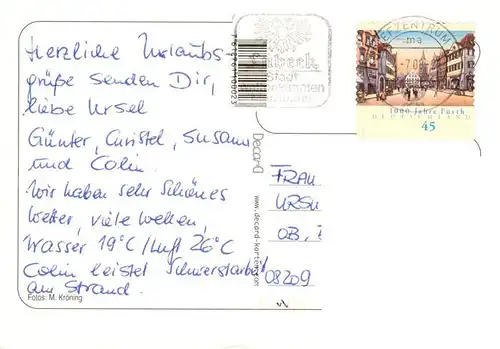 Herzliche Urlaubs-
grüße senden Dir,
liebe Ursel
Günter, Christel, Susann
und Colin.
Wir haben sehr schönes
Wetter, viele Wellen,
Wasser 19°C/Luft 26°C
Colin leistet Schwerstarbeit
am Strand.
Fotos: M. Kröning
DecarD
www.decard-karten
Stadt
1000 Jahre Fürth
DEUTSCHLAND
45
FRAU
URSU
OB.
08209